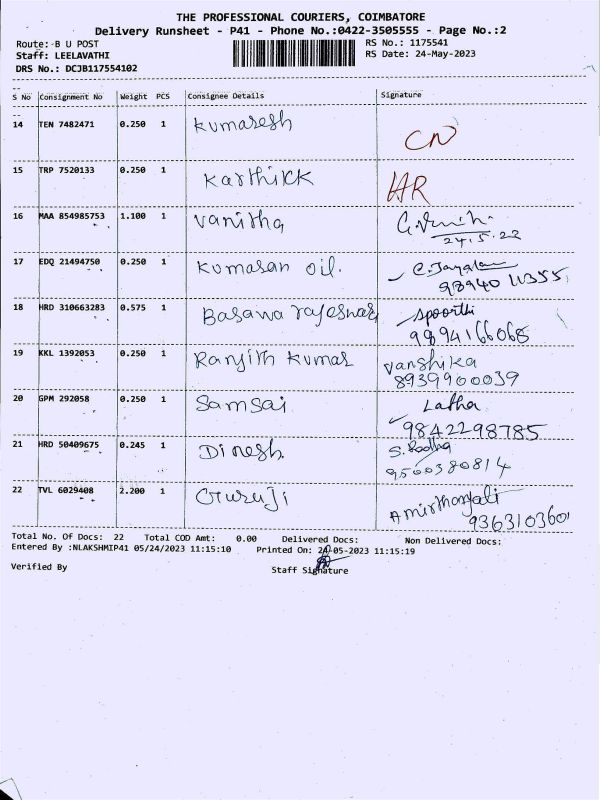 THE PROFESSIONAL COURIERS, COIMBATORE
Delivery Runsheet - P41 - Phone No.:0422-3505555 - Page No.:2
Route: B U POST RS No.: 1175541
Staff: LEELAVATHI RS Date: 24-May-2023
DRS No.: DCJB117554102
S No Consignment No Weight PCS Consignee Details Signature
14 TEN 7482471 0.250 1 Kumaresh CN
15 TRP 7520133 0.250 1 Karthikk HR
16 MAA 854985753 1.100 1 Vanitha
24.5.23
17 EDQ 21494750 0.250 1 Kumaran oil. C. Jayalan
98940 11355
18 HRD 310663283 0.575 1 Basawa rajeswar Spoorthi
9894166068
19 KKL 1392053 0.250 1 Ranjith kumar Vanshika
8939900039
20 GPM 292058 0.250 1 Samsai Latha
9842298785
21 HRD 50409675 0.245 1 Dinesh S. Radha
9500380814
22 TVL 6029408 2.200 1 Guruji Amirthanjali
9363103601
Total No. Of Docs: 22 Total COD Amt: 0.00 Delivered Docs: Non Delivered Docs:
Entered By :NLAKSHMIP41 05/24/2023 11:15:10 Printed On: 24-05-2023 11:15:19
Verified By Staff Signature